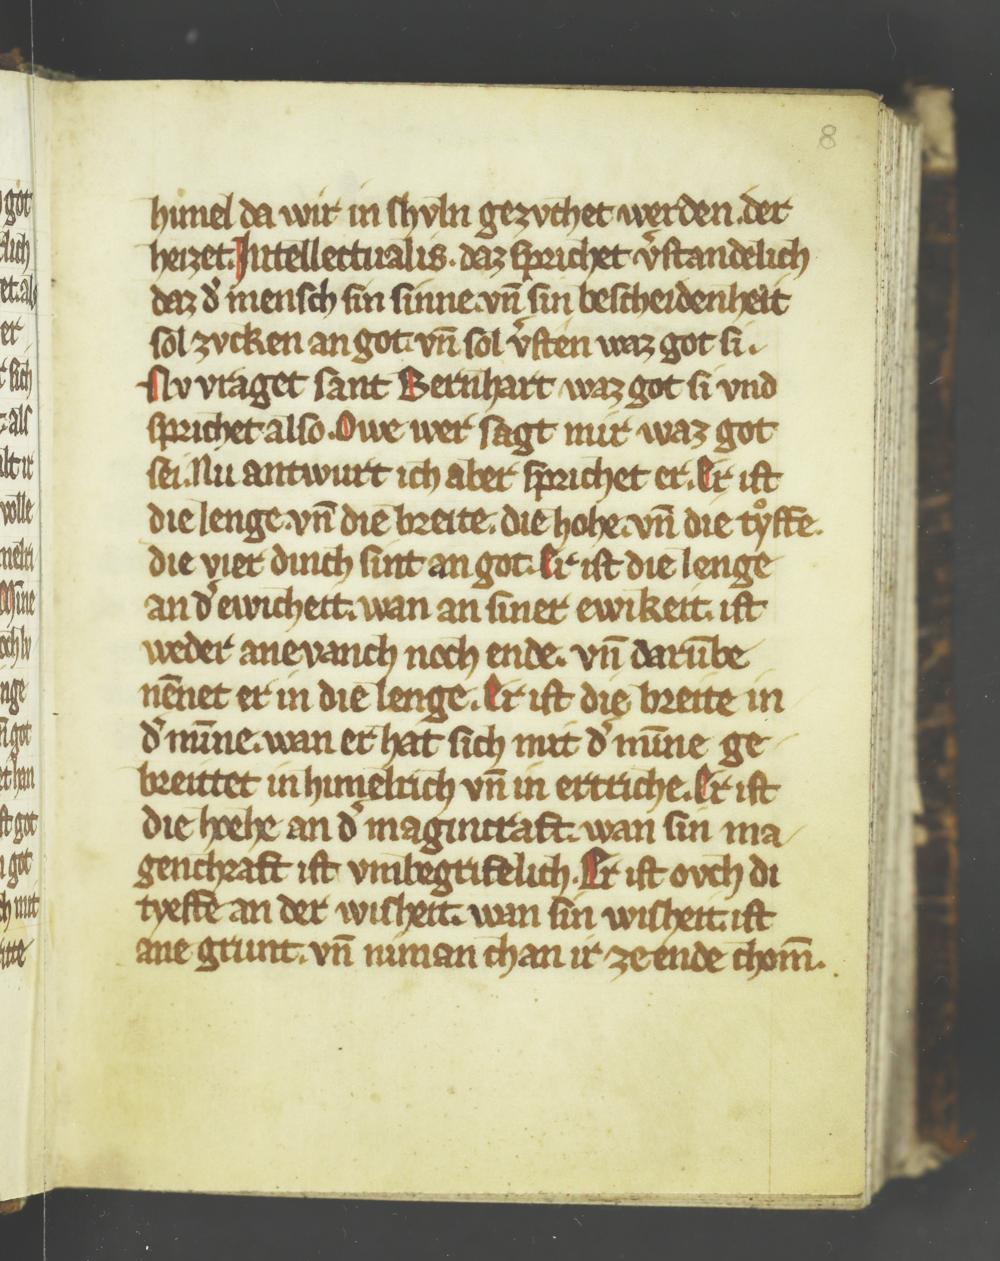 8
himel da wir in shvln gezvchet werden. der
heizet. Intellectualis. daz sprichet v͛standelich
daz d͛ mensch sin sinne. vn̄ sin bescheidenheit
sol zvcken an got. vn̄ sol v͛sten waz got si.
Nv vraget sant Bernhart waz got si vnd
sprichet also. Owe wer sagt mir waz got
sei. Nu antwurt ich aber sprichet er. Er ist
die lenge. vn̄ die breite. die hohe. vn̄ die tyͦffe.
die vier dinch sint an got. Er ist die lenge
an d͛ ewicheit. wan an siner ewikeit. ist
weder anevanch noch ende. vn̄ darūbe
nēnet er in die lenge. Er ist die breite in
d͛ mīne. wan er hat sich mit d͛ mīne ge
breittet in himelrich vn̄ in ertriche. Er ist
die hoehe an d͛ magincraft. wan sin ma
genchraft ist vmbegrifelich. Er ist ovch di
tyeffe an der wisheit. wan sin wisheit. ist
ane grunt. vn̄ niman chan ir ze ende chom̄.